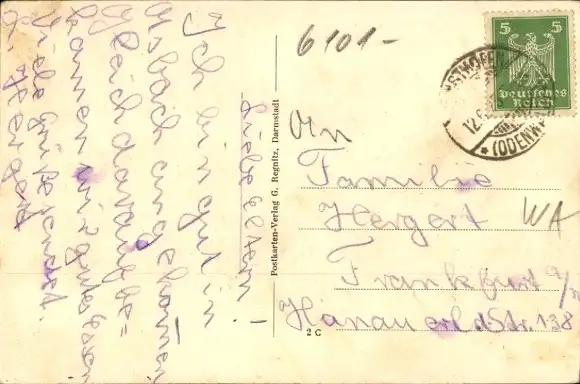 Liebe Eltern!
Ich bin gut in
Asbach angekommen
gleich darauf be=
kamen wir gutes Essen
Viele Grüße sendet
6101-
5 5
Deutsches
Reich
12.
(ODENW
An
Familie
Hergert
WA
Frankfurt a/M
Hanauerldstr. 138
Postkarten-Verlag G. Regnitz, Darmstadt
2 C